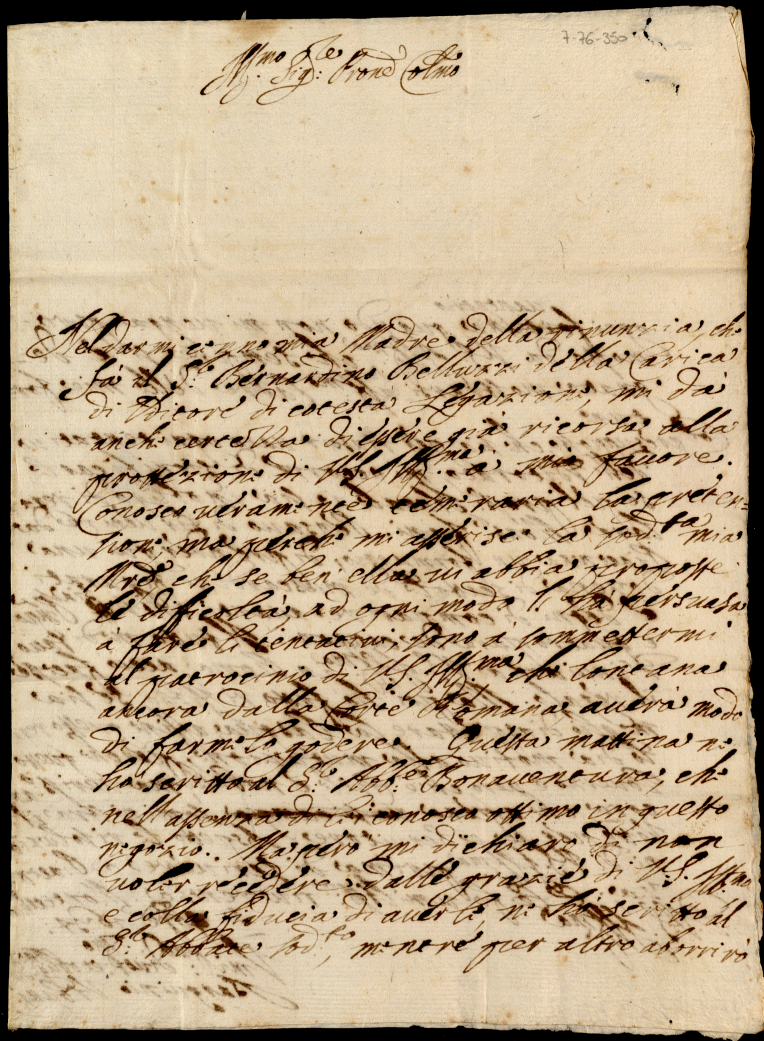 7-76-350
Ill.mo Sig.re Pron.e Col.mo
Nel darmi cenno mia Madre della rinunzia, che
fà il S.r Bernardino Belluzzi della Carica
di Uditore di cotesta Legazione, mi dà
anche certezza d'essere già ricorsa alla
protezione di V.S. Ill.ma à mio favore.
Conosco veramente temeraria la preten=
sione, ma perche mi asserisce la sod.ta mia
M.re che se ben ella vi abbia proposte
le dificoltà ad ogni modo li ha persuasa
à fare li tentativi, sono à sommettermi
al patrocinio di V.S. Ill.ma che lontana
ancora dalla Corte Romana avrà modo
di farmelo godere. Questa mattina ne
ho scritto al S.r Abb.e Bonaventura, che
nell'assenza di Lei conosco ottimo in questo
negozio. Ma però mi dichiaro di non
voler recedere dalle grazie di V.S. Ill.ma
e colla fiducia di averle ne hò scritto al
S.r Abbate sod.to, mentre per altro aborrirò